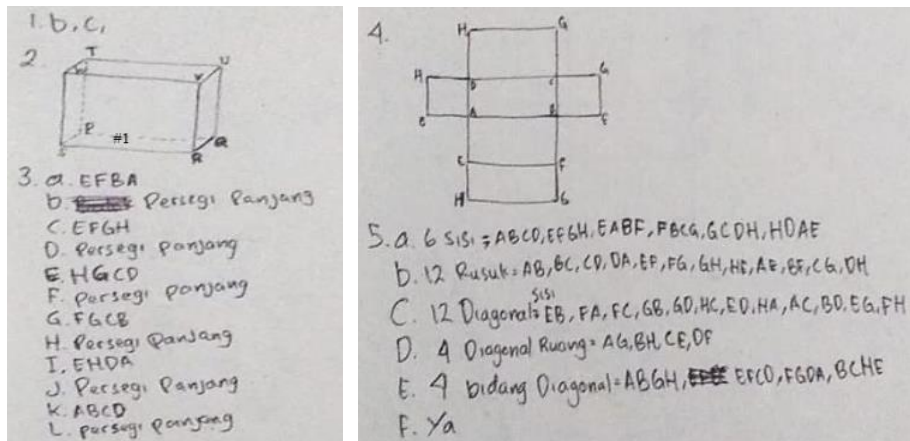 1. b, C,
2.
T
U
W
V
P
#1
Q
S
R
3. a. EFBA
b. Persegi Panjang
C. EFGH
D. Persegi panjang
E. HGCD
F. persegi panjang
G. FGCB
H. Persegi Panjang
I. EHDA
J. Persegi Panjang
K. ABCD
L. persegi panjang
4.
H G
H D C G
E A B F
E F
H G
5. a. 6 sisi = ABCD, EFGH, EABF, FBCG, GCDH, HDAE
b. 12 Rusuk = AB, BC, CD, DA, EF, FG, GH, HE, AE, BF, CG, DH
C. 12 Diagonal sisi = EB, FA, FC, GB, GD, HC, ED, HA, AC, BD, EG, FH
D. 4 Diagonal Ruang = AG, BH, CE, DF
E. 4 bidang Diagonal = ABGH, EFCD, FGDA, BCHE
F. Ya